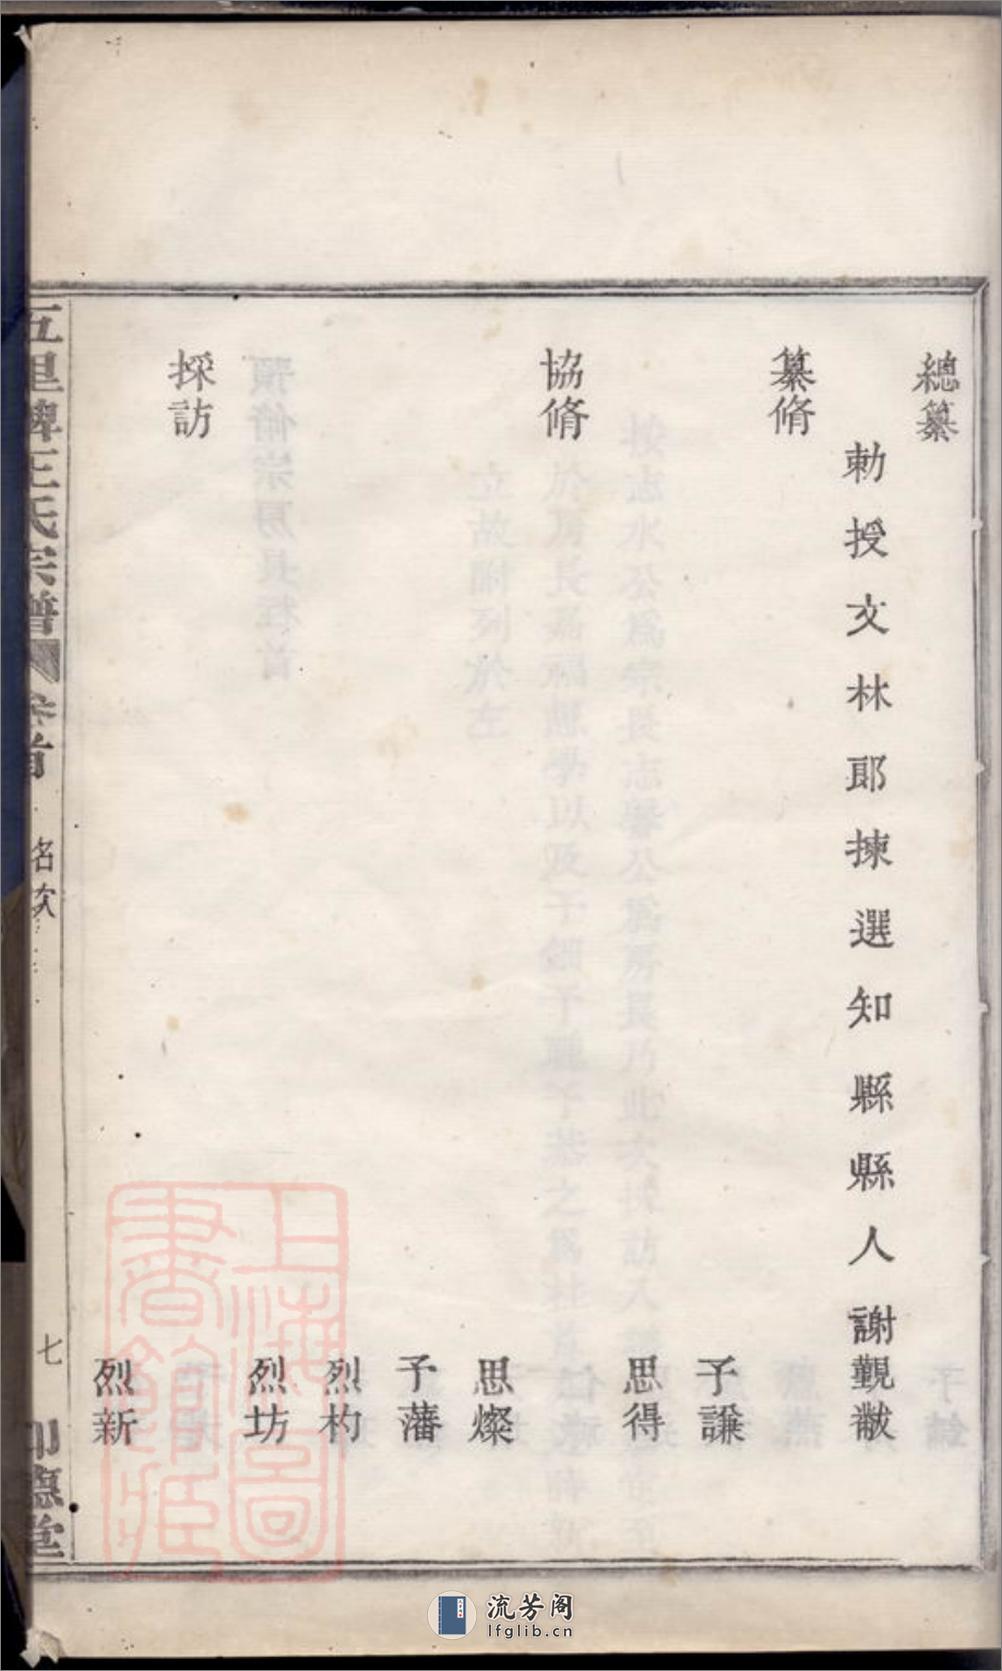 總纂
勅授文林郎揀選知縣縣人謝覲黻
纂脩
予謙
思得
協脩
思燦
予藩
烈杓
烈坊
採訪
烈新
五里牌王氏宗譜
卷首
名次
七
上海圖書館藏
流芳阁
lfglib.cn